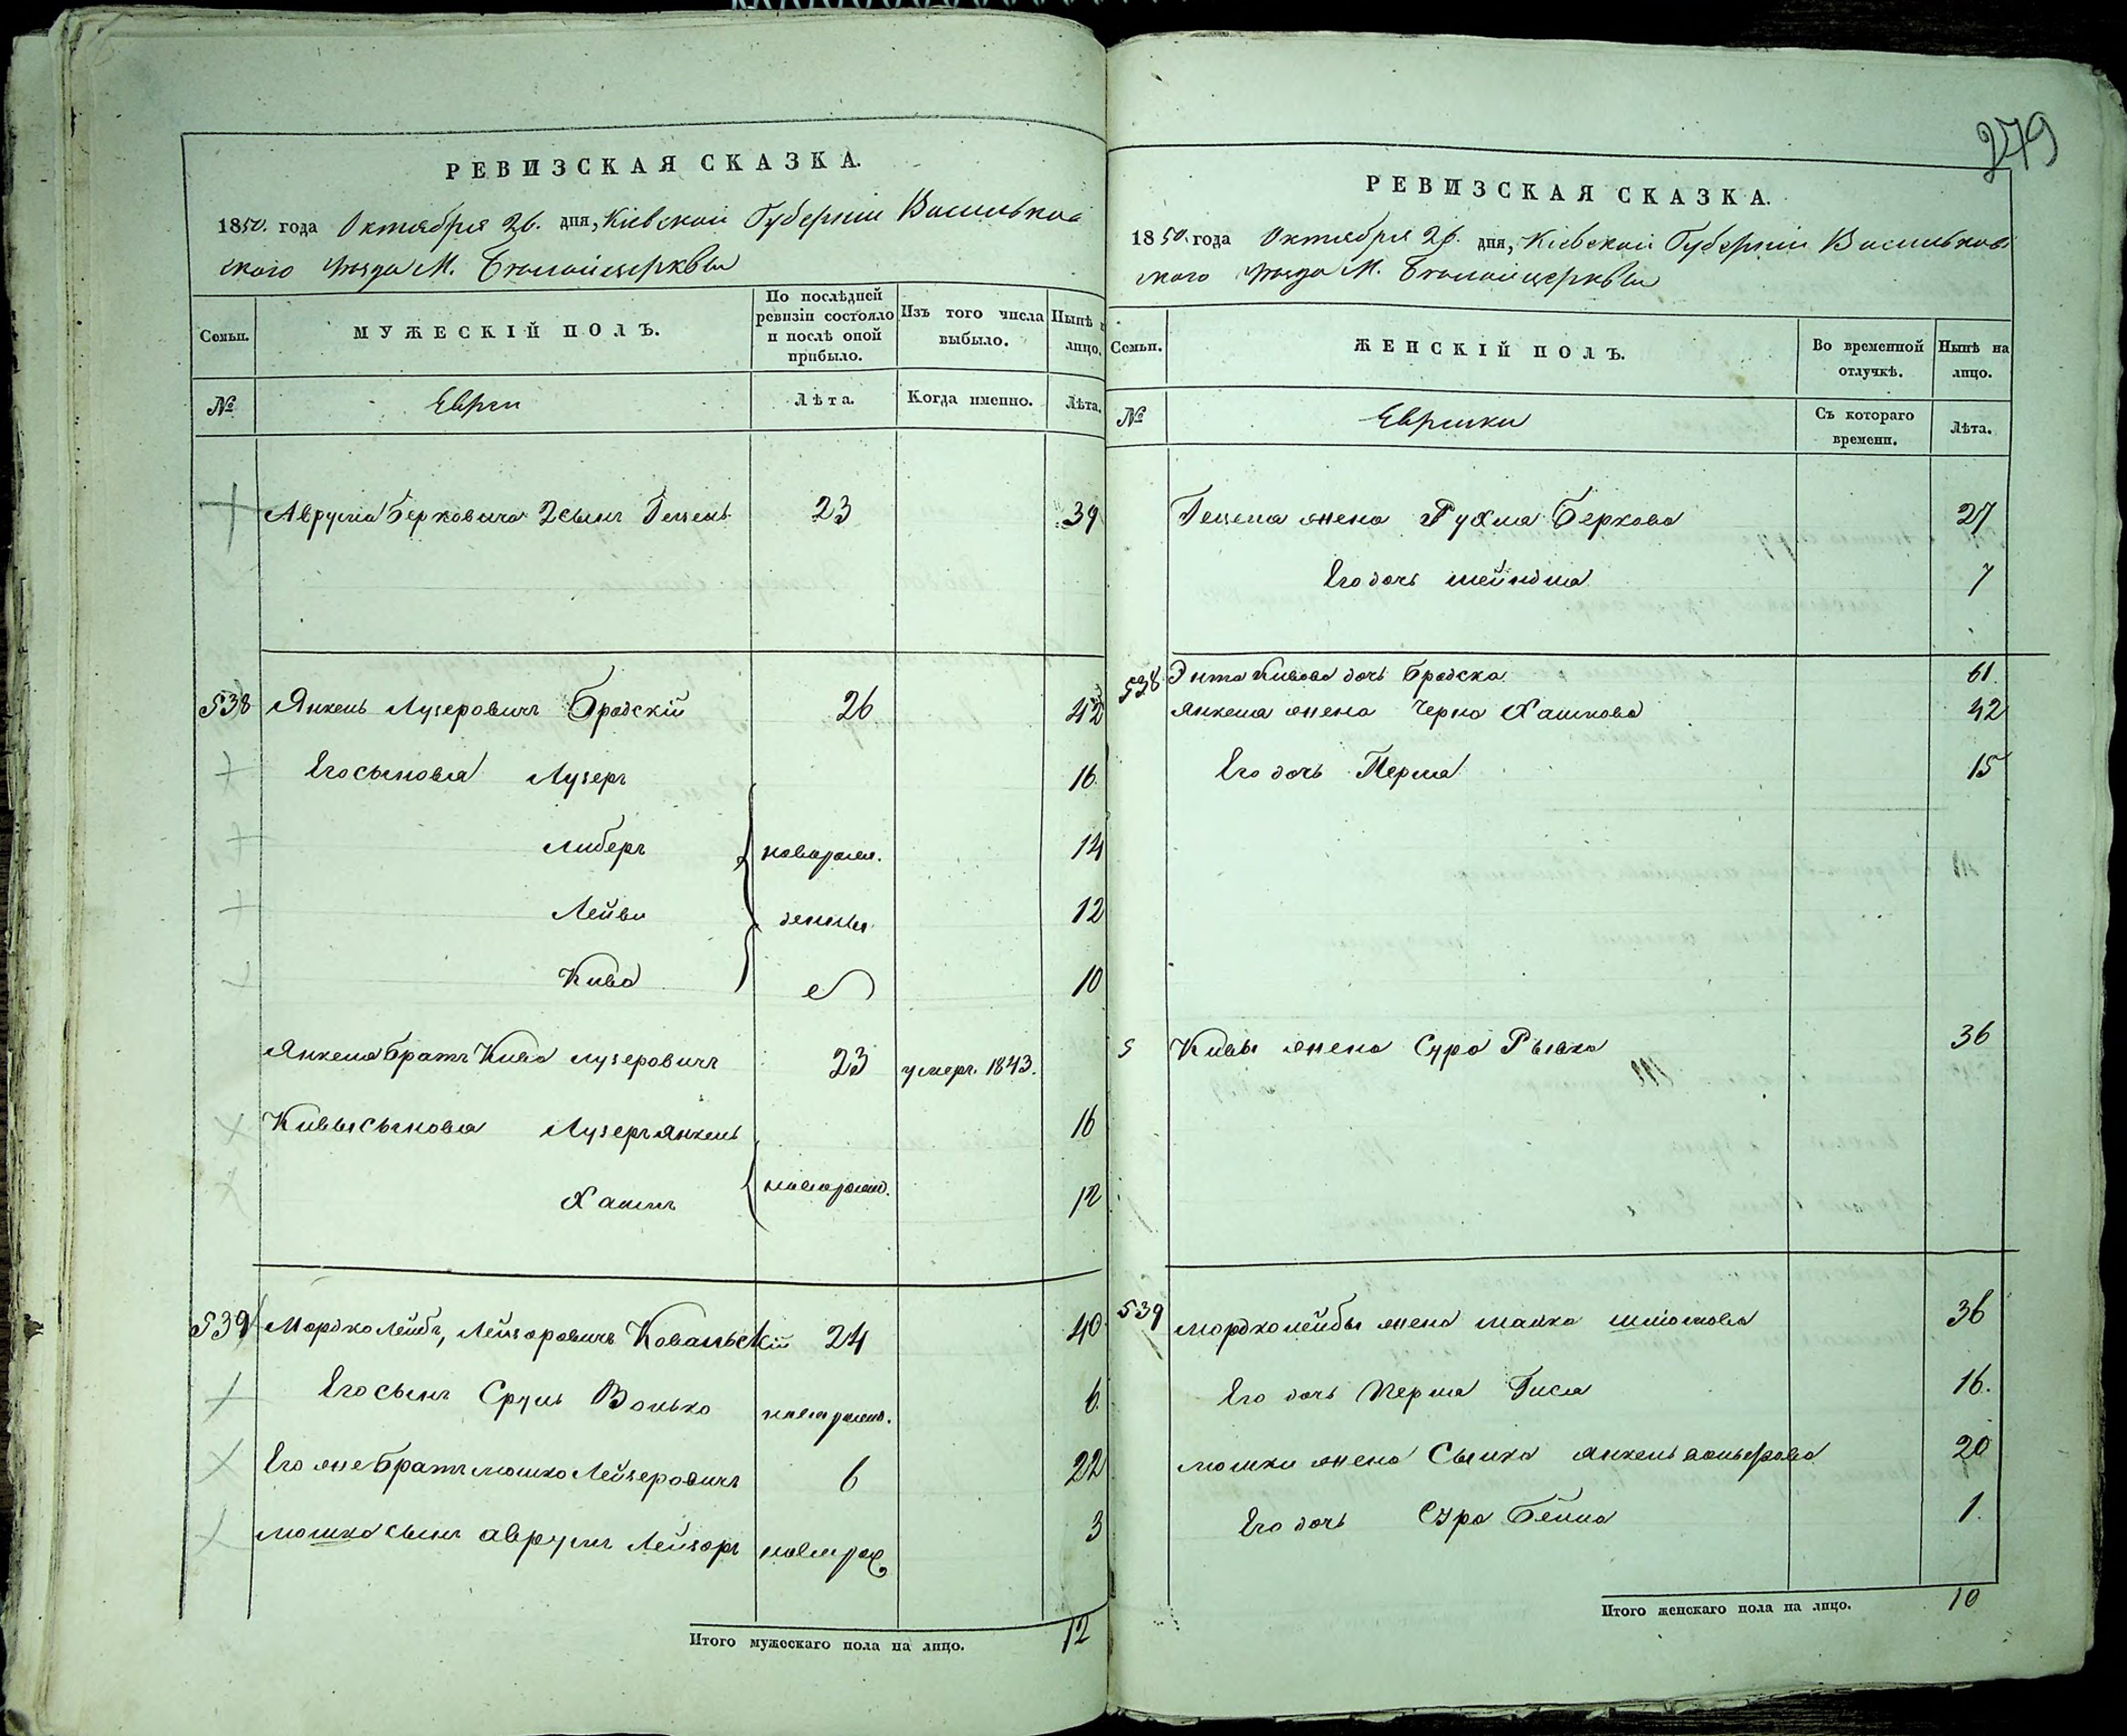 РЕВИЗСКАЯ СКАЗКА.
1850. года Октября 26. дня, Кіевской Губерніи Васильков
ского уѣзда М. Бѣлойцерквы
Семьи.
МУЖЕСКІЙ ПОЛЪ.
По послѣдней ревизіи состояло и послѣ оной прибыло.
Изъ того числа выбыло.
Нынѣ на лицо.
№
Евреи
Лѣта.
Когда именно.
Лѣта.
Аврума Берковича 2 сынъ Гецель 23 39
538 Янкель Лузеровичъ Бродскій 26 42
Его сыновья Лузеръ 16
Либеръ новорож. 14
Лейви денныя 12
Кива 10
Янкеля братъ Кива Лузеровичъ 23 умеръ. 1843.
Кивы сыновья Лузеръ Янкель 16
Хаимъ новорожд. 12
539 Мордко Лейбъ, Лейзоровичъ Ковальскій 24 40
Его сынъ Сруль Волько новорожд. 6.
Его же братъ Мошко Лейзеровичъ 6 22
Мошко сынъ Аврумъ Лейзоръ новорож 3
Итого мужескаго пола на лицо. 12
279
РЕВИЗСКАЯ СКАЗКА.
1850. года Октября 26. дня, Кіевской Губерніи Васильков
ского уѣзда М. Бѣлойцерквы
Семьи.
ЖЕНСКІЙ ПОЛЪ.
Во временной отлучкѣ.
Нынѣ на лицо.
№
Еврейки
Съ котораго времени.
Лѣта.
Гецеля жена Рухля Беркова 27
Его дочь Шейндля 7
538 Энта Кивова дочь Бродска 61.
Янкеля жена Черна Хаимова 42
Его дочь Перля 15
Кивы жена Сура Рывка 36
539 Мордколейбы жена Малка Шліомова 36
Его дочь Перля Гися 16.
Мошки жена Сылка Янкель 20
Его дочь Сура Бейла 1.
Итого женскаго пола на лицо. 10